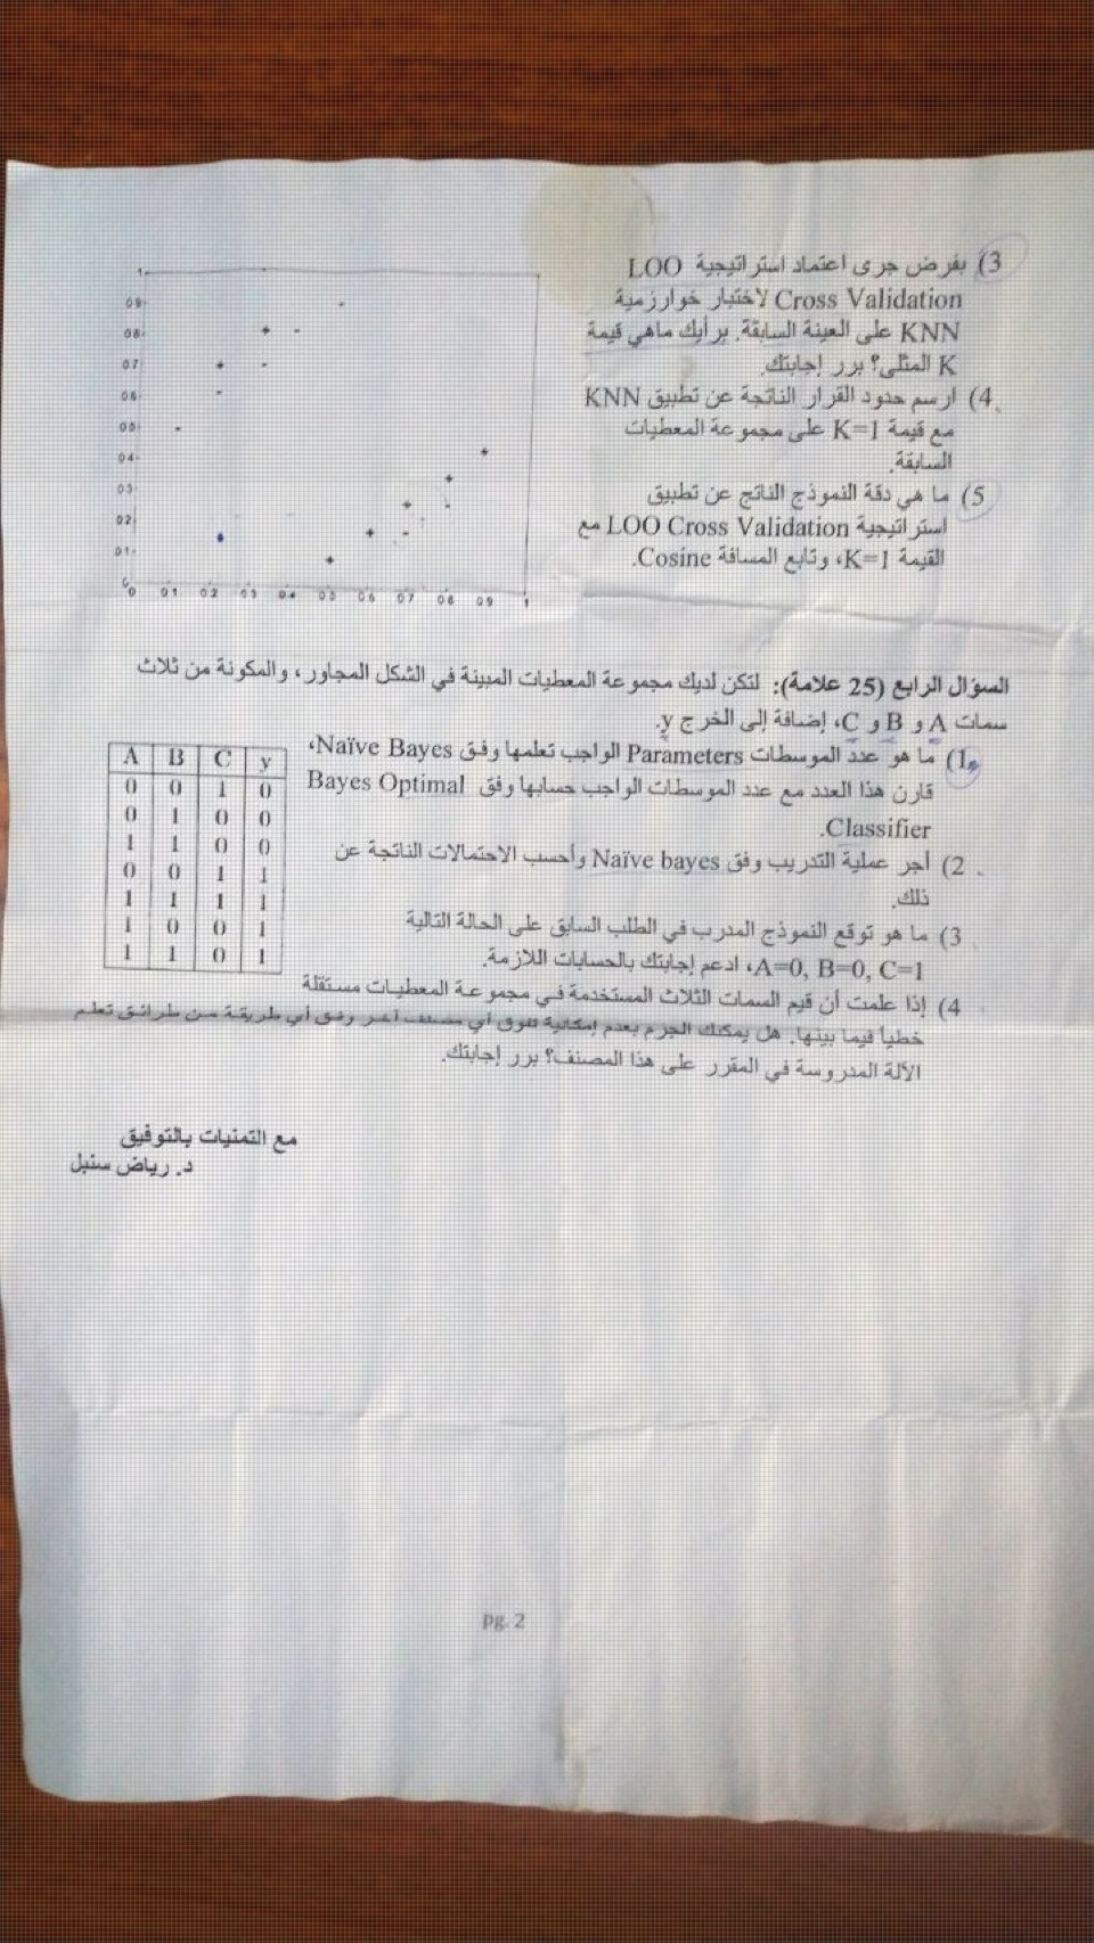 3) بفرض جرى اعتماد استراتيجية LOO
Cross Validation لاختبار خوارزمية
KNN على العينة السابقة. برأيك ماهي قيمة
K المثلى؟ برر إجابتك.
4) ارسم حدود القرار الناتجة عن تطبيق KNN
مع قيمة K=1 على مجموعة المعطيات
السابقة.
5) ما هي دقة النموذج الناتج عن تطبيق
استراتيجية LOO Cross Validation مع
القيمة K=1، وتابع المسافة Cosine.
1
0.9
0.8
0.7
0.6
0.5
0.4
0.3
0.2
0.1
0
0 0.1 0.2 0.3 0.4 0.5 0.6 0.7 0.8 0.9 1
السؤال الرابع (25 علامة): لتكن لديك مجموعة المعطيات المبينة في الشكل المجاور، والمكونة من ثلاث
سمات A و B و C، إضافة إلى الخرج y.
1) ما هو عدد الموسطات Parameters الواجب تعلمها وفق Naïve Bayes،
قارن هذا العدد مع عدد الموسطات الواجب حسابها وفق Bayes Optimal
Classifier.
2) أجر عملية التدريب وفق Naïve bayes وأحسب الاحتمالات الناتجة عن
ذلك.
3) ما هو توقع النموذج المدرب في الطلب السابق على الحالة التالية
A=0, B=0, C=1، ادعم إجابتك بالحسابات اللازمة.
4) إذا علمت أن قيم السمات الثلاث المستخدمة في مجموعة المعطيات مستقلة
خطياً فيما بينها. هل يمكنك الجزم بعدم إمكانية تفوق أي مصنف آخر وفق أي طريقة من طرائق تعلم
الآلة المدروسة في المقرر على هذا المصنف؟ برر إجابتك.
A B C y
0 0 1 0
0 1 0 0
1 1 0 0
0 0 1 1
1 1 1 1
1 0 0 1
1 1 0 1
مع التمنيات بالتوفيق
د. رياض سنبل
pg. 2